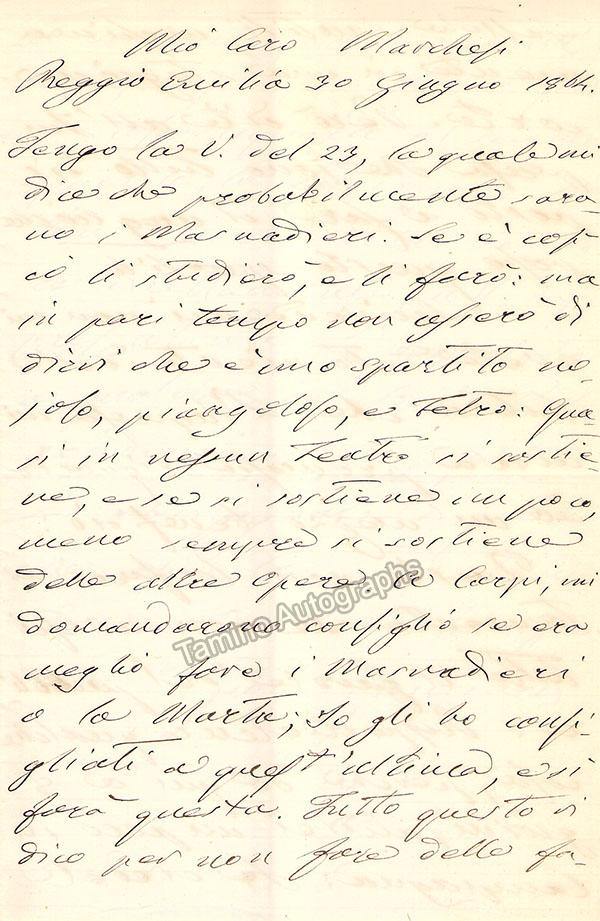 Mio Caro Marchesi
Reggio Emilia 30 Giugno 1864.
Tengo la V. del 23, la quale mi
dice che probabilmente sara-
no i Masnadieri. Se è cosi
io li studierò, e li farò: ma
in pari tempo non cesserò di
dirvi che è uno spartito no-
joso, piangoloso, e tetro: Qua-
si in nessun teatro si sostie-
ne, e se si sostiene un poco,
meno sempre si sostiene
delle altre opere. A Carpi, mi
domandarono consiglio se era
meglio fare i Masnadieri
o la Marta; Io gli ho consi-
gliati a quest'ultima, e si
farà questa. Tutto questo vi
dico per non fare delle fa-
Tamino Autographs